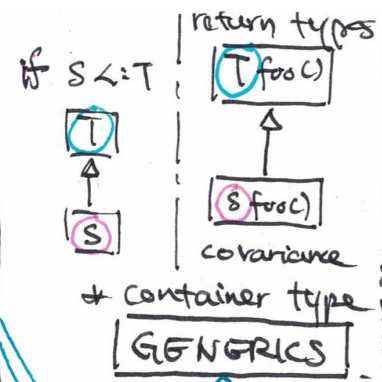 if S <: T
T
S
return types
T foo()
S foo()
covariance
* container type
GENERICS